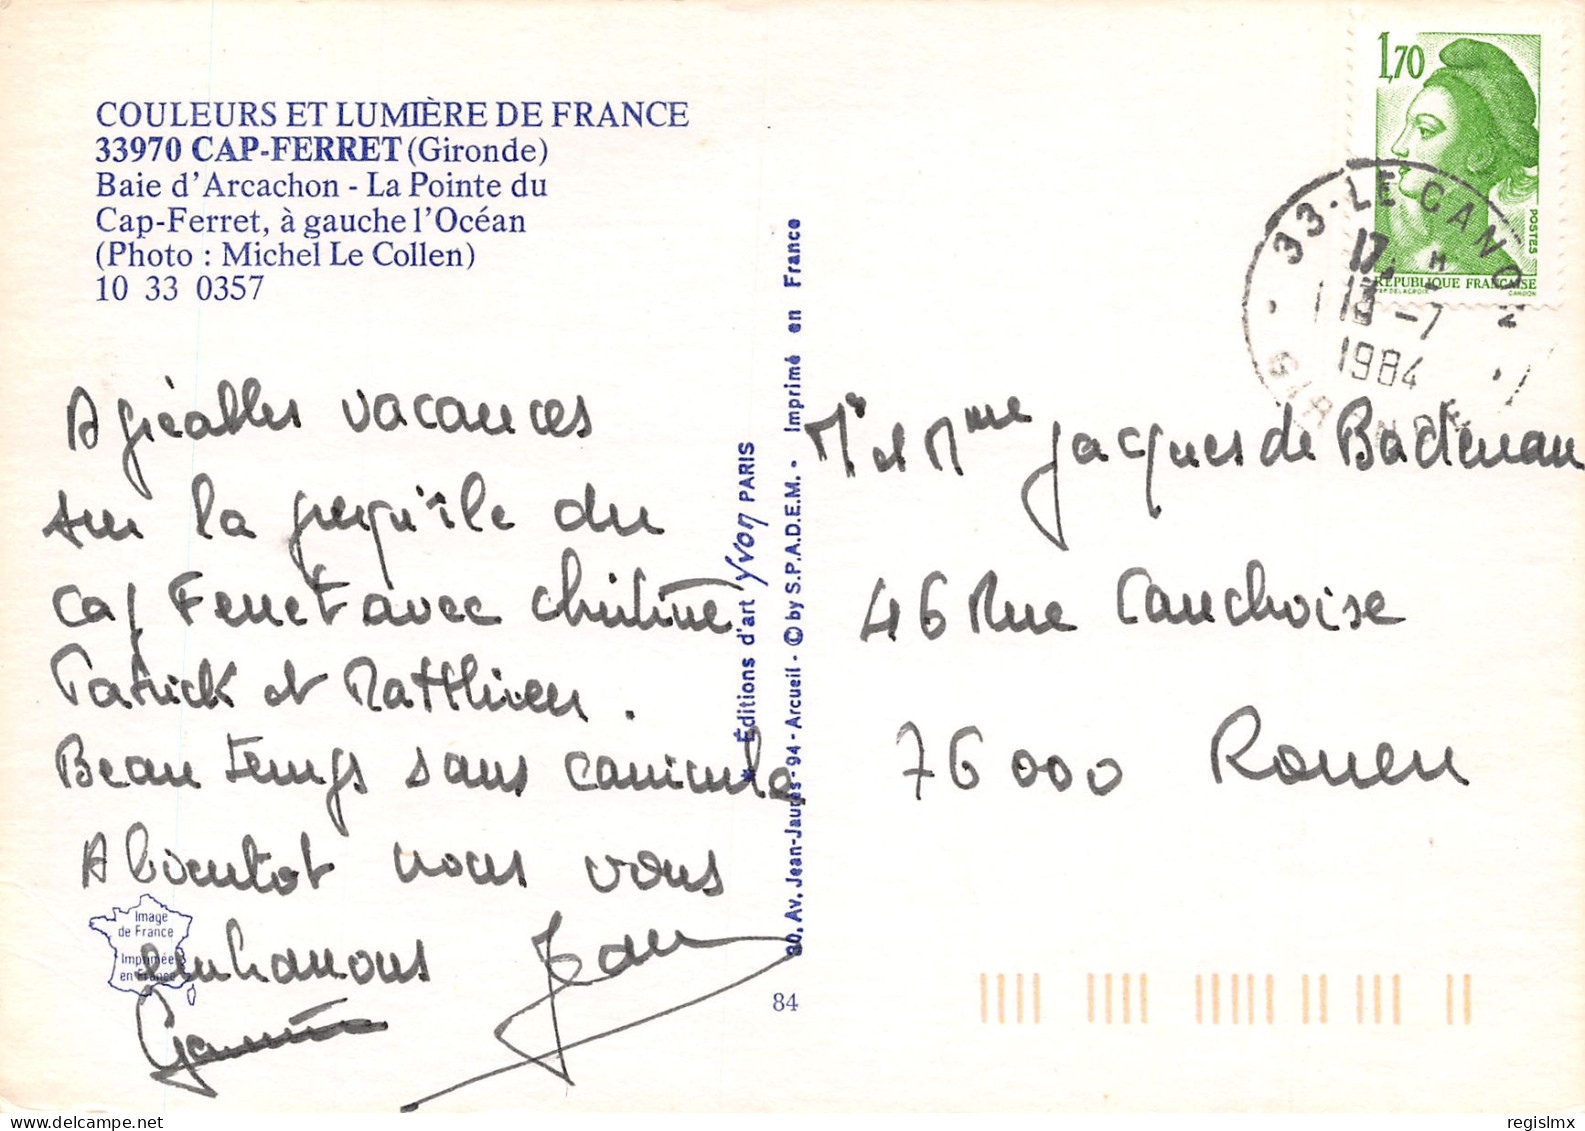 COULEURS ET LUMIÈRE DE FRANCE
33970 CAP-FERRET (Gironde)
Baie d'Arcachon - La Pointe du
Cap-Ferret, à gauche l'Océan
(Photo : Michel Le Collen)
10 33 0357
Agréables vacances
sur la presqu'île du
Cap Ferret avec Christine
Patrick et Matthieu.
Beau temps sans canicule
A bientôt nous vous
embrassons
Jean
Image
de France
Imprimée
en France
* Éditions d'art Yvon PARIS
30, Av. Jean-Jaurès - 94 - Arcueil - © by S.P.A.D.E.M. - Imprimé en France
84
1,70
POSTES
RÉPUBLIQUE FRANÇAISE
AP. DELACROIX GANDON
33 - LE CANON
17 H
13 -7
1984
GIRONDE
Mr et Mme Jacques de
46 Rue Cauchoise
76000 Rouen
regislmx